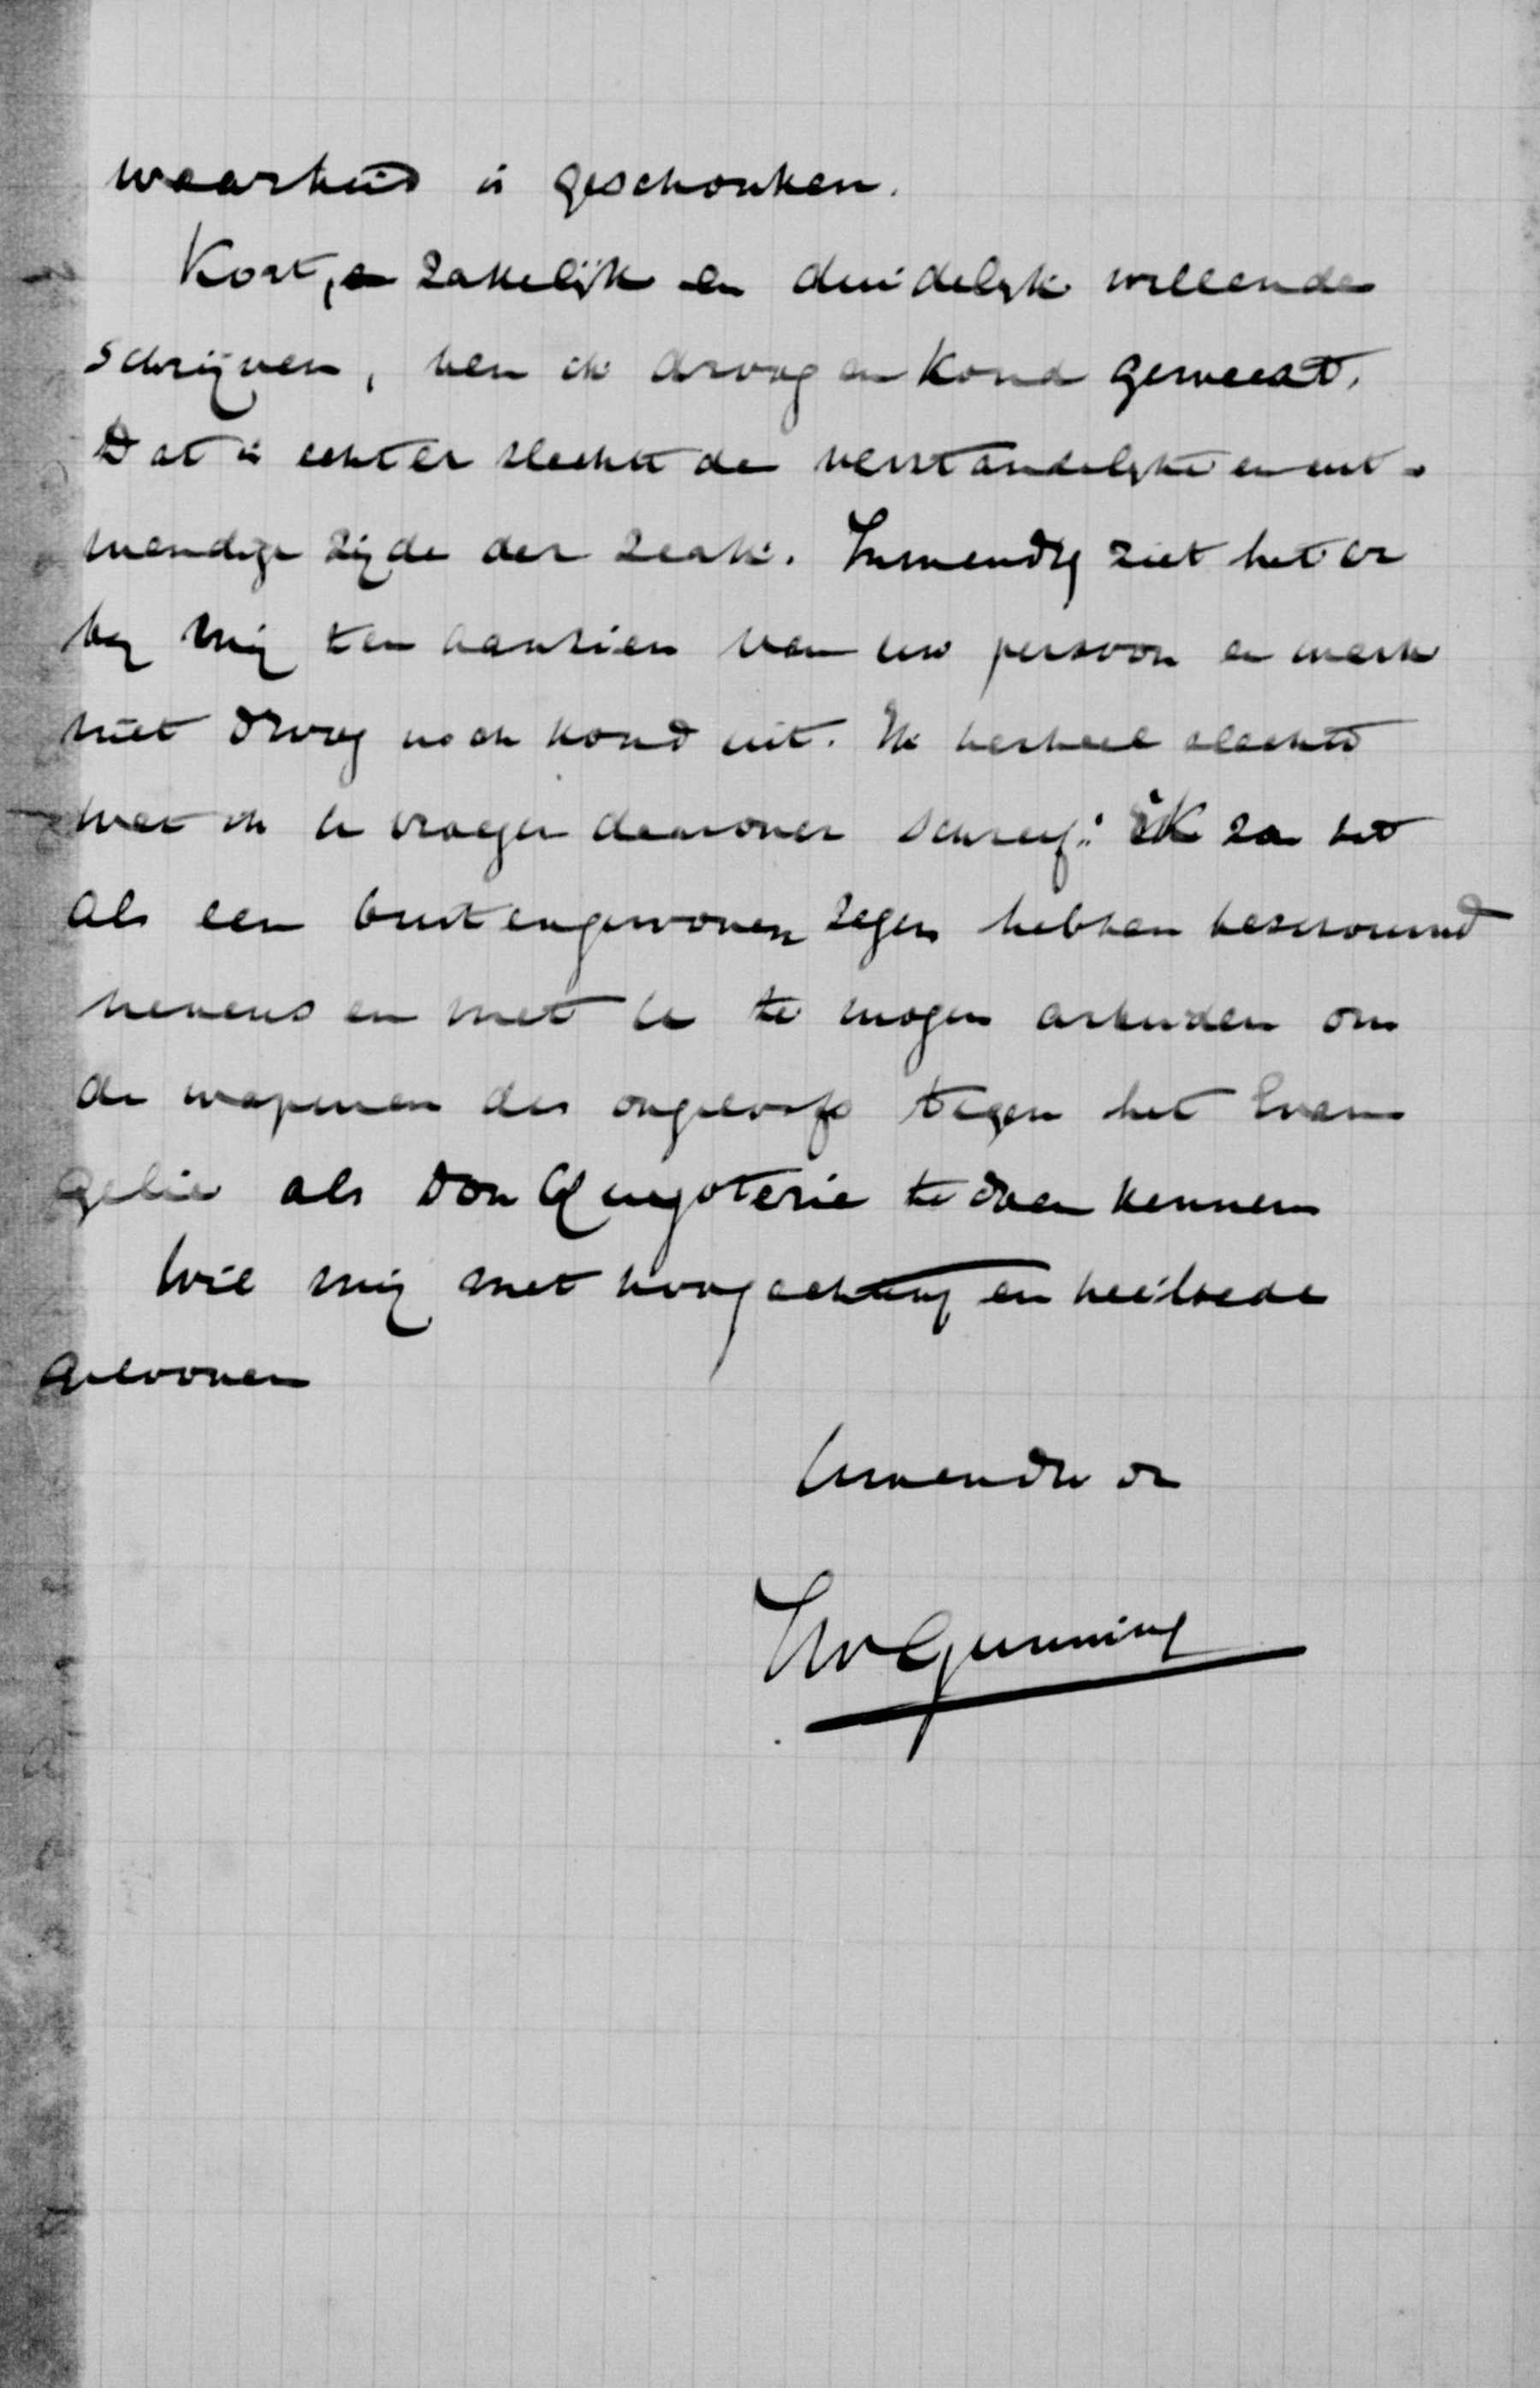 waarheid is geschonken.
Kort, zakelijk en duidelijk willende
schrijven, ben ik droog en koud geweest.
Dat is echter slechts de verstandelijke en uit-
wendige zijde der zaak. Inwendig ziet het er
bij mij ten aanzien van uw persoon en werk
niet droog noch koud uit. Ik herhaal slechts
wat ik U vroeger daarover schreef: ik zou het
als een buitengewonen zegen hebben beschouwd
nevens en met U te mogen arbeiden om
de wapenen des ongeloofs tegen het Evan
gelie als Don Quijoterie te doen kennen
Wil mij met hoogachting en heilbede
gelooven
Uw
JWGunning